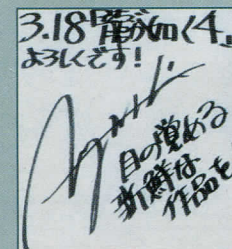 3.18『龍が如く4』
よろしくです!
目の覚める
新鮮な
作品を